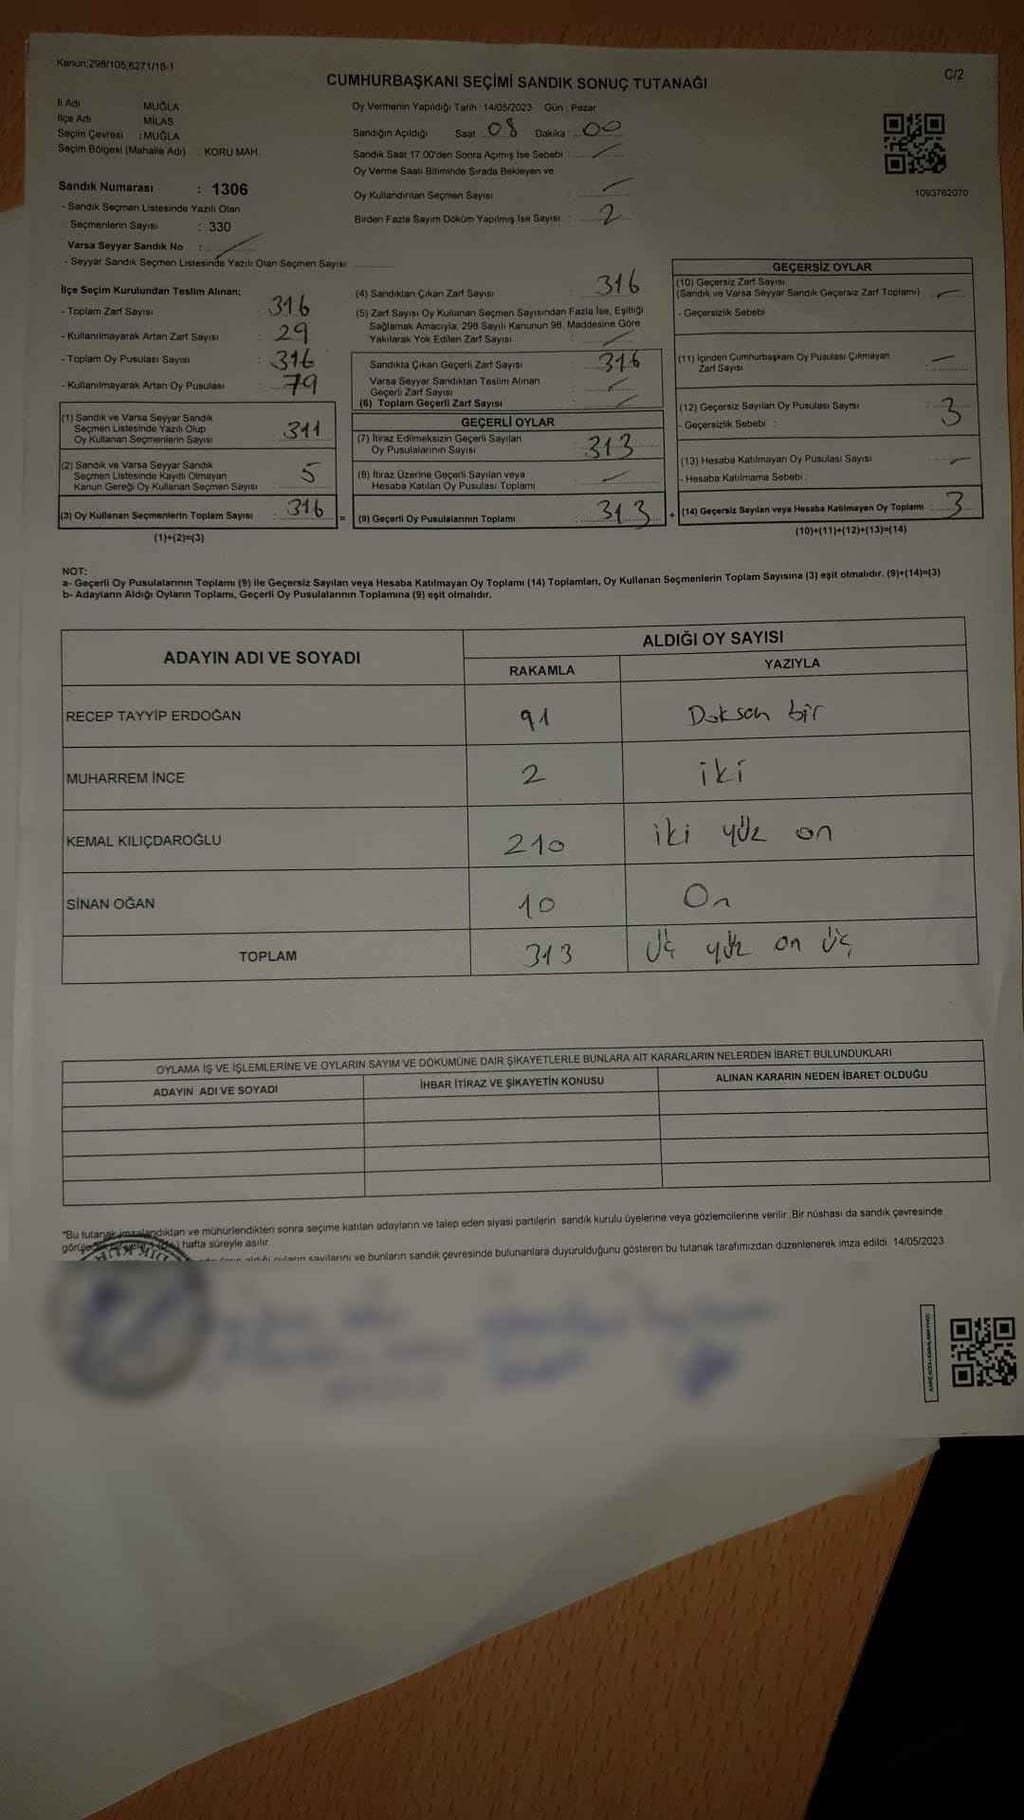 Kanun:298/105,6271/18-1
C/2
CUMHURBAŞKANI SEÇİMİ SANDIK SONUÇ TUTANAĞI
İl Adı MUĞLA
İlçe Adı MİLAS
Seçim Çevresi : MUĞLA
Seçim Bölgesi (Mahalle Adı) : KORU MAH.
Sandık Numarası : 1306
- Sandık Seçmen Listesinde Yazılı Olan
Seçmenlerin Sayısı : 330
Varsa Seyyar Sandık No :
- Seyyar Sandık Seçmen Listesinde Yazılı Olan Seçmen Sayısı
Oy Vermenin Yapıldığı Tarih : 14/05/2023 Gün : Pazar
Sandığın Açıldığı Saat 08 Dakika 00
Sandık Saat 17.00'den Sonra Açımış İse Sebebi
Oy Verme Saati Bitiminde Sırada Bekleyen ve
Oy Kullandırılan Seçmen Sayısı
Birden Fazla Sayım Döküm Yapılmış İse Sayısı : 2
1093762070
İlçe Seçim Kurulundan Teslim Alınan:
- Toplam Zarf Sayısı : 316
- Kullanılmayarak Artan Zarf Sayısı : 29
- Toplam Oy Pusulası Sayısı : 316
- Kullanılmayarak Artan Oy Pusulası : 79
(1) Sandık ve Varsa Seyyar Sandık
Seçmen Listesinde Yazılı Olup
Oy Kullanan Seçmenlerin Sayısı 311
(2) Sandık ve Varsa Seyyar Sandık
Seçmen Listesinde Kayıtlı Olmayan
Kanun Gereği Oy Kullanan Seçmen Sayısı 5
(3) Oy Kullanan Seçmenlerin Toplam Sayısı 316
(1)+(2)=(3)
(4) Sandıktan Çıkan Zarf Sayısı 316
(5) Zarf Sayısı Oy Kullanan Seçmen Sayısından Fazla İse, Eşitliği
Sağlamak Amacıyla; 298 Sayılı Kanunun 98. Maddesine Göre
Yakılarak Yok Edilen Zarf Sayısı
Sandıkta Çıkan Geçerli Zarf Sayısı 316
Varsa Seyyar Sandıktan Teslim Alınan
Geçerli Zarf Sayısı
(6) Toplam Geçerli Zarf Sayısı
GEÇERLİ OYLAR
(7) İtiraz Edilmeksizin Geçerli Sayılan
Oy Pusulalarının Sayısı 313
(8) İtiraz Üzerine Geçerli Sayılan veya
Hesaba Katılan Oy Pusulası Toplamı
= (9) Geçerli Oy Pusulalarının Toplamı 313
GEÇERSİZ OYLAR
(10) Geçersiz Zarf Sayısı
(Sandık ve Varsa Seyyar Sandık Geçersiz Zarf Toplamı)
- Geçersizlik Sebebi
(11) İçinden Cumhurbaşkanı Oy Pusulası Çıkmayan
Zarf Sayısı
(12) Geçersiz Sayılan Oy Pusulası Sayısı 3
- Geçersizlik Sebebi :
(13) Hesaba Katılmayan Oy Pusulası Sayısı
- Hesaba Katılmama Sebebi :
+ (14) Geçersiz Sayılan veya Hesaba Katılmayan Oy Toplamı 3
(10)+(11)+(12)+(13)=(14)
NOT:
a- Geçerli Oy Pusulalarının Toplamı (9) ile Geçersiz Sayılan veya Hesaba Katılmayan Oy Toplamı (14) Toplamları, Oy Kullanan Seçmenlerin Toplam Sayısına (3) eşit olmalıdır. (9)+(14)=(3)
b- Adayların Aldığı Oyların Toplamı, Geçerli Oy Pusulalarının Toplamına (9) eşit olmalıdır.
ADAYIN ADI VE SOYADI
ALDIĞI OY SAYISI
RAKAMLA YAZIYLA
RECEP TAYYİP ERDOĞAN 91 Doksan bir
MUHARREM İNCE 2 iki
KEMAL KILIÇDAROĞLU 210 iki yüz on
SİNAN OĞAN 10 On
TOPLAM 313 Üç yüz on üç
OYLAMA İŞ VE İŞLEMLERİNE VE OYLARIN SAYIM VE DÖKÜMÜNE DAİR ŞİKAYETLERLE BUNLARA AİT KARARLARIN NELERDEN İBARET BULUNDUKLARI
ADAYIN ADI VE SOYADI İHBAR İTİRAZ VE ŞİKAYETİN KONUSU ALINAN KARARIN NEDEN İBARET OLDUĞU
"Bu tutanak imzalandıktan ve mühürlendikten sonra seçime katılan adayların ve talep eden siyasi partilerin sandık kurulu üyelerine veya gözlemcilerine verilir. Bir nüshası da sandık çevresinde
hafta süreyle asılır.
aldığı oyların sayılarını ve bunların sandık çevresinde bulunanlara duyurulduğunu gösteren bu tutanak tarafımızdan düzenlenerek imza edildi. 14/05/2023